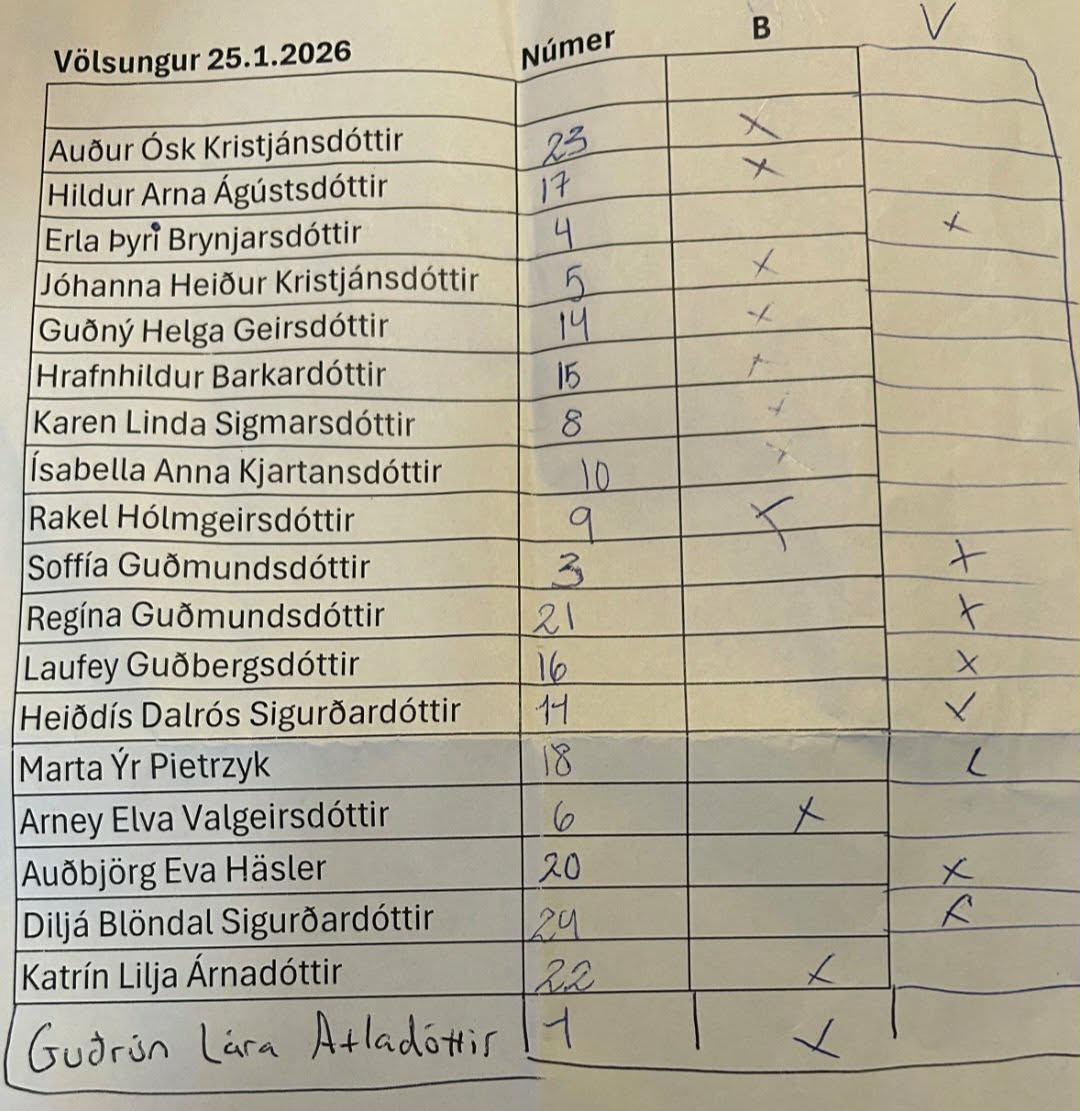 Völsungur 25.1.2026 Númer B V
Auður Ósk Kristjánsdóttir 23 X
Hildur Arna Ágústsdóttir 17 X
Erla Þyri Brynjarsdóttir 4 X
Jóhanna Heiður Kristjánsdóttir 5 X
Guðný Helga Geirsdóttir 14 X
Hrafnhildur Barkardóttir 15 X
Karen Linda Sigmarsdóttir 8 X
Ísabella Anna Kjartansdóttir 10 X
Rakel Hólmgeirsdóttir 9 X
Soffía Guðmundsdóttir 3 X
Regína Guðmundsdóttir 21 X
Laufey Guðbergsdóttir 16 X
Heiðdís Dalrós Sigurðardóttir X
Marta Ýr Pietrzyk 18
Arney Elva Valgeirsdóttir 6 X
Auðbjörg Eva Häsler 20 X
Diljá Blöndal Sigurðardóttir 24 X
Katrín Lilja Árnadóttir 22 X
Guðrún Lára Atladóttir 1 X